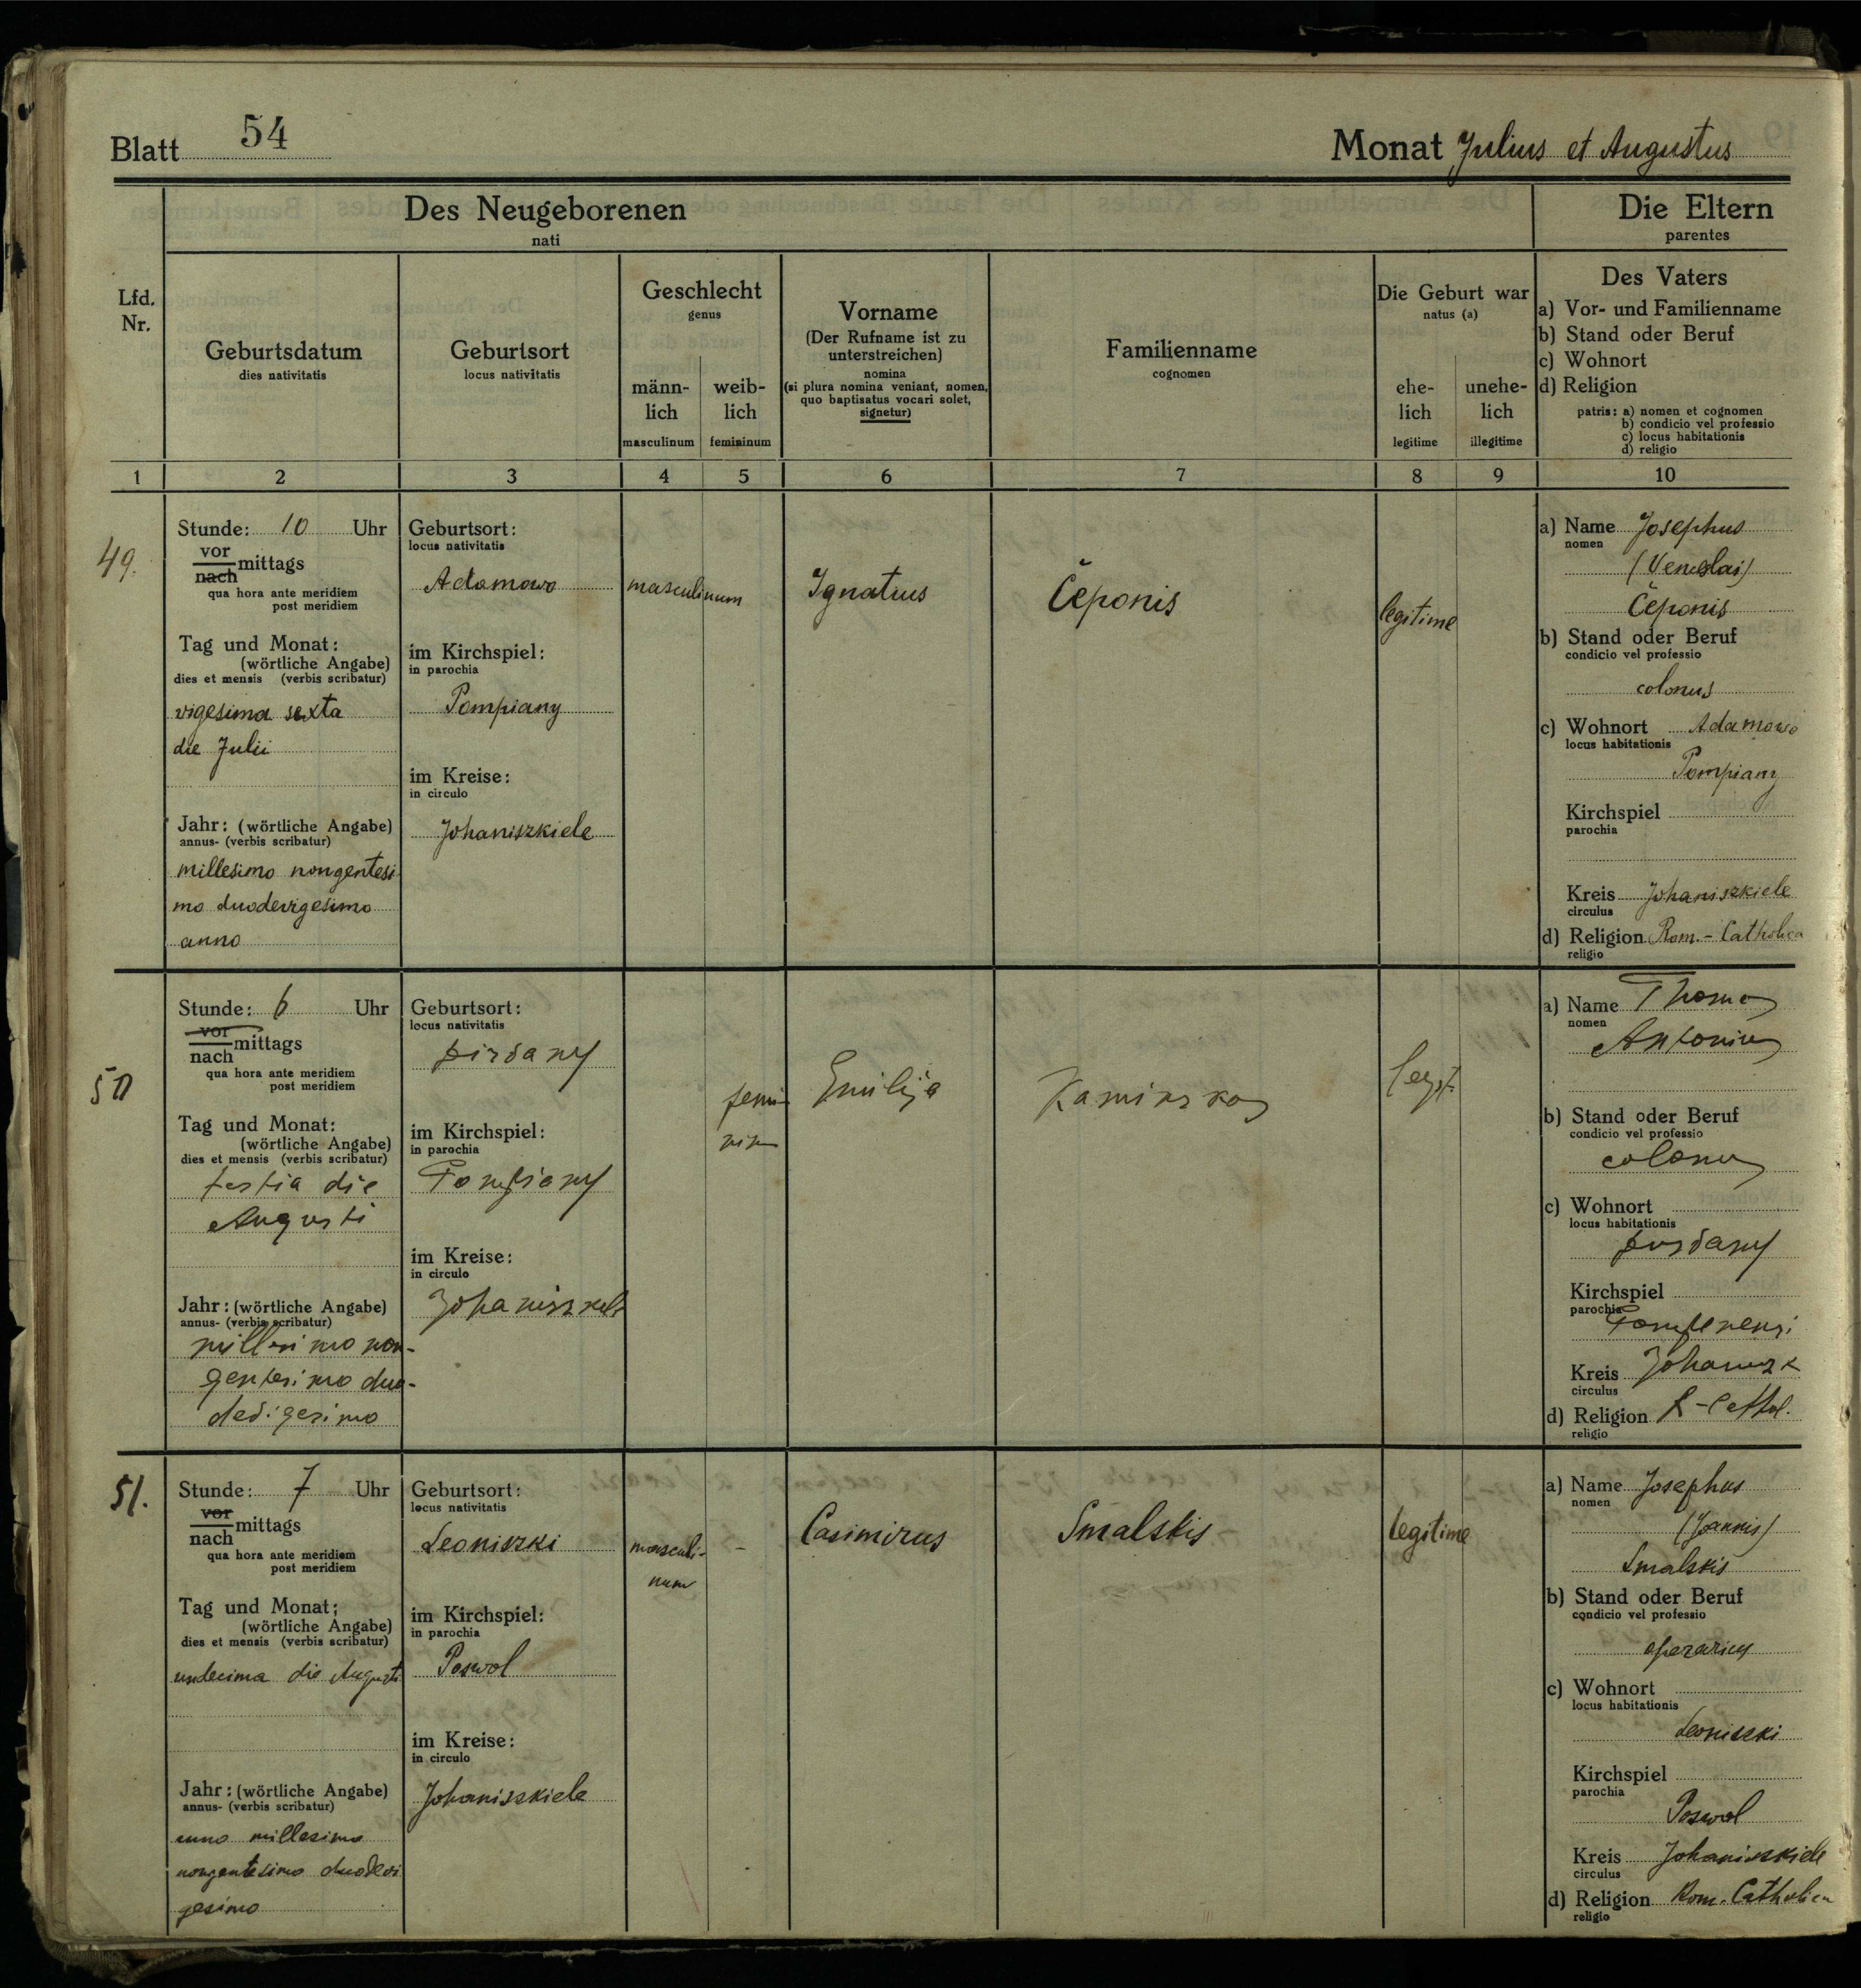 Blatt 54
Monat Julius et Augustus
Des Neugeborenen
nati
Die Eltern
parentes
Lfd.
Nr.
Geburtsdatum
dies nativitatis
Geburtsort
locus nativitatis
Geschlecht
genus
männ-
lich
masculinum
weib-
lich
femininum
Vorname
(Der Rufname ist zu
unterstreichen)
nomina
(si plura nomina veniant, nomen,
quo baptisatus vocari solet,
signetur)
Familienname
cognomen
Die Geburt war
natus (a)
ehe-
lich
legitime
unehe-
lich
illegitime
Des Vaters
a) Vor- und Familienname
b) Stand oder Beruf
c) Wohnort
d) Religion
patris: a) nomen et cognomen
b) condicio vel professio
c) locus habitationis
d) religio
1 2 3 4 5 6 7 8 9 10
49.
Stunde: 10 Uhr
vor
nach mittags
qua hora ante meridiem
post meridiem
Tag und Monat:
(wörtliche Angabe)
dies et mensis (verbis scribatur)
vigesima sexta
die Julii
Jahr: (wörtliche Angabe)
annus- (verbis scribatur)
millesimo nongentesi
mo duodevigesimo
anno
Geburtsort:
locus nativitatis
Adamowo
im Kirchspiel:
in parochia
Pompiany
im Kreise:
in circulo
Johaniszkiele
masculinum
Ignatius
Čeponis
legitime
a) Name Josephus
nomen
Čeponis
b) Stand oder Beruf
condicio vel professio
colonus
c) Wohnort Adamowo
locus habitationis
Pompiany
Kirchspiel
parochia
Kreis Johaniszkiele
circulus
d) Religion Rom.- Catholica
religio
50
Stunde: 6 Uhr
vor
nach mittags
qua hora ante meridiem
post meridiem
Tag und Monat:
(wörtliche Angabe)
dies et mensis (verbis scribatur)
tertia die
Augusti
Jahr: (wörtliche Angabe)
annus- (verbis scribatur)
millesimo non-
gentesimo duo-
Geburtsort:
locus nativitatis
im Kirchspiel:
in parochia
Pompiany
im Kreise:
in circulo
femi
nin
Emilija
legit.
a) Name
nomen
Antonius
b) Stand oder Beruf
condicio vel professio
colonus
c) Wohnort
locus habitationis
Kirchspiel
parochia
Kreis
circulus
d) Religion R-Cathol.
religio
51.
Stunde: 7 Uhr
vor
nach mittags
qua hora ante meridiem
post meridiem
Tag und Monat:
(wörtliche Angabe)
dies et mensis (verbis scribatur)
undecima die Augusti
Jahr: (wörtliche Angabe)
annus- (verbis scribatur)
anno millesimo
nongentesimo duodevi
gesimo
Geburtsort:
locus nativitatis
Leoniszki
im Kirchspiel:
in parochia
Poswol
im Kreise:
in circulo
Johaniszkiele
masculi-
num
-
Casimirus
Smalskis
legitime
a) Name Josephus
nomen
(Joannis)
Smalskis
b) Stand oder Beruf
condicio vel professio
operarius
c) Wohnort
locus habitationis
Leoniszki
Kirchspiel
parochia
Poswol
Kreis Johaniszkiele
circulus
d) Religion Rom. Catholica
religio